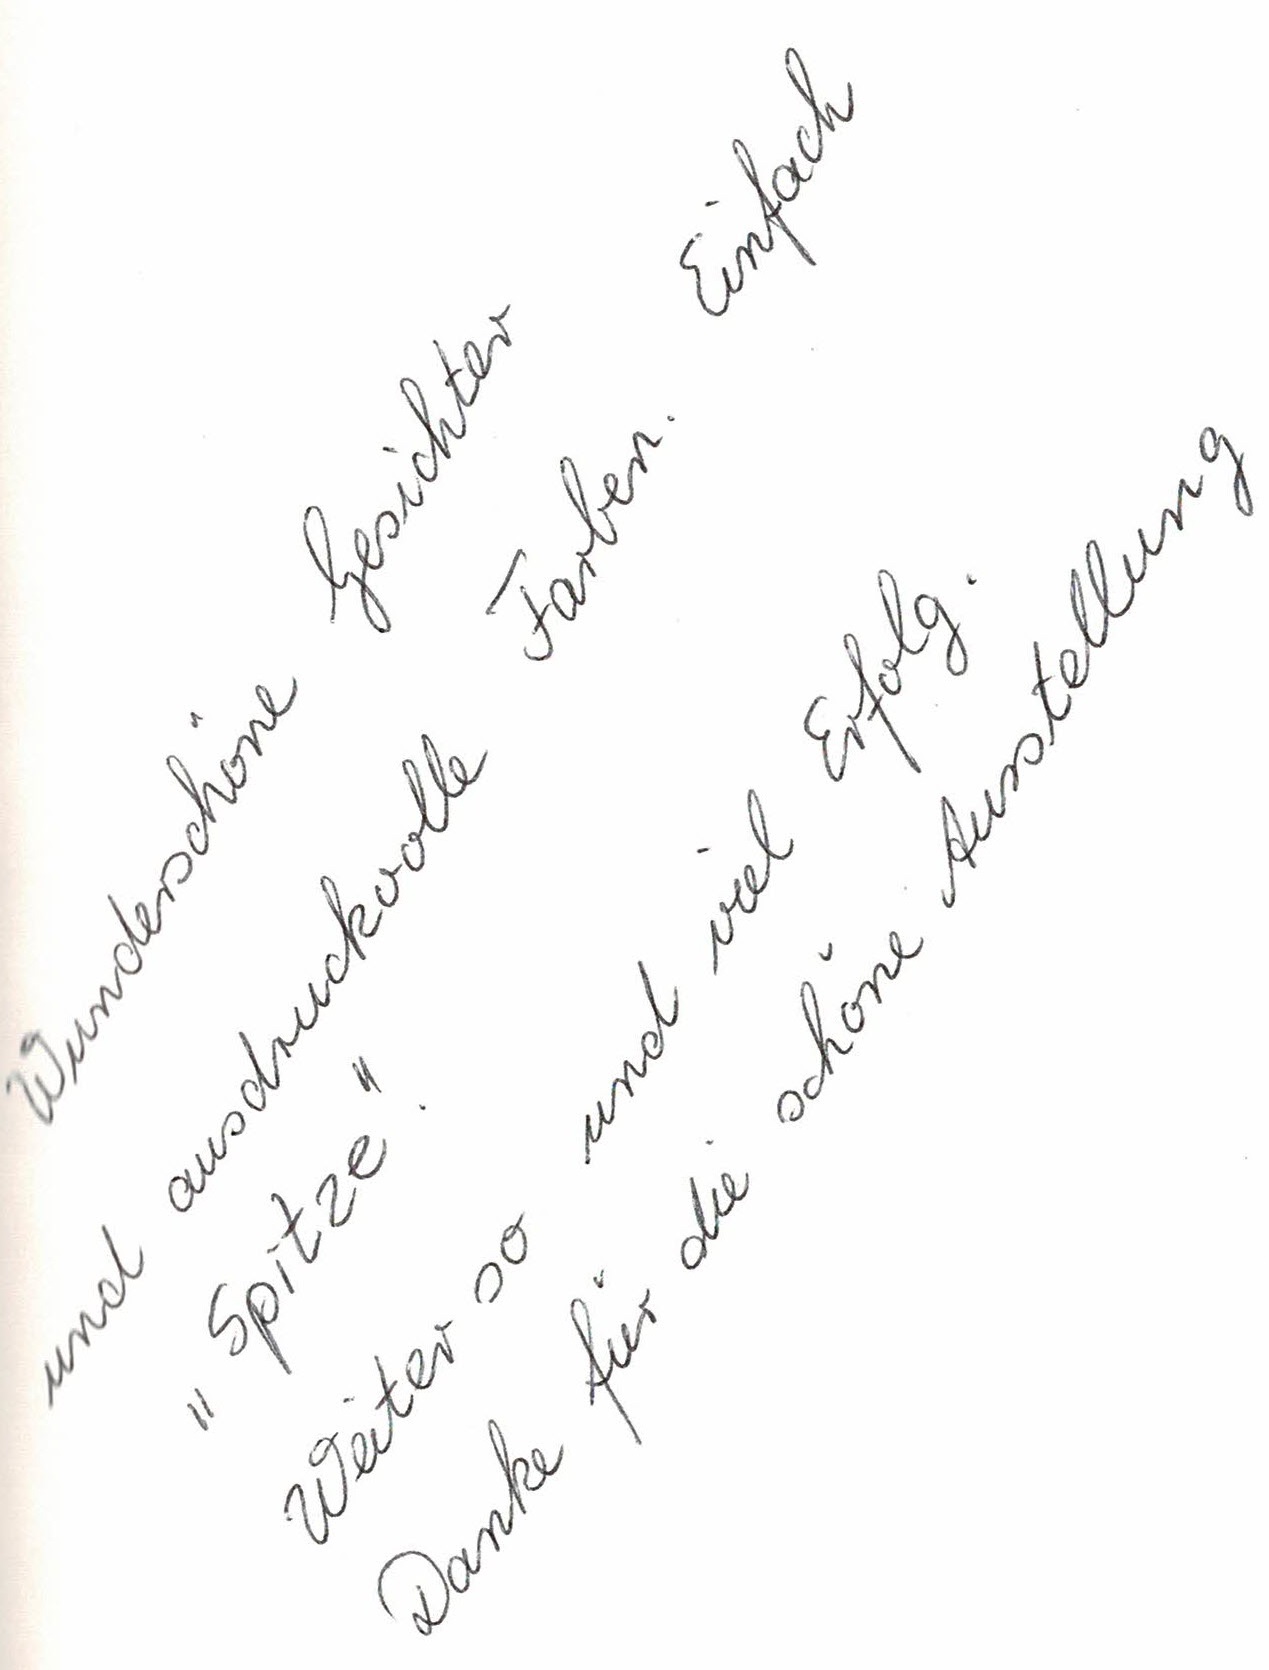 Wunderschöne Gesichter
und ausdruckvolle Farben. Einfach
"Spitze".
Weiter so und viel Erfolg.
Danke für die schöne Ausstellung